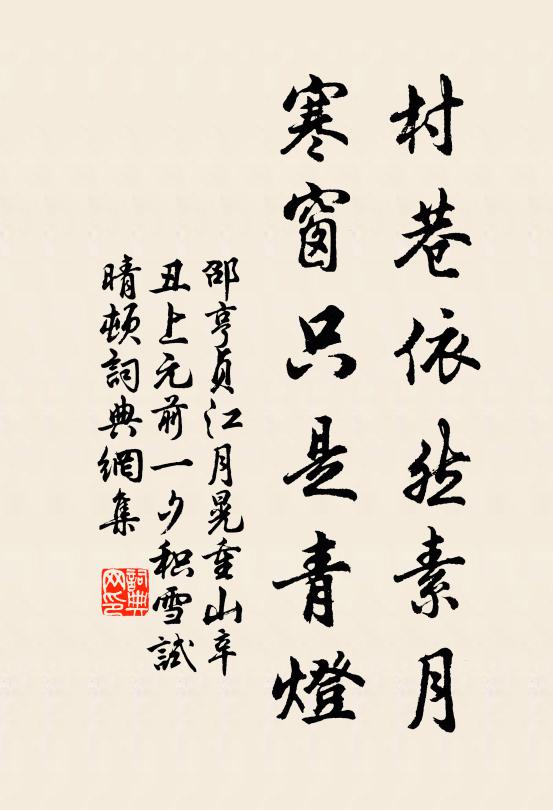 村巷依然素月
寒窗只是青燈
邵亨貞江月晃重山辛
丑上元前一夕积雪試
晴頓詞典網集
詞典
网印